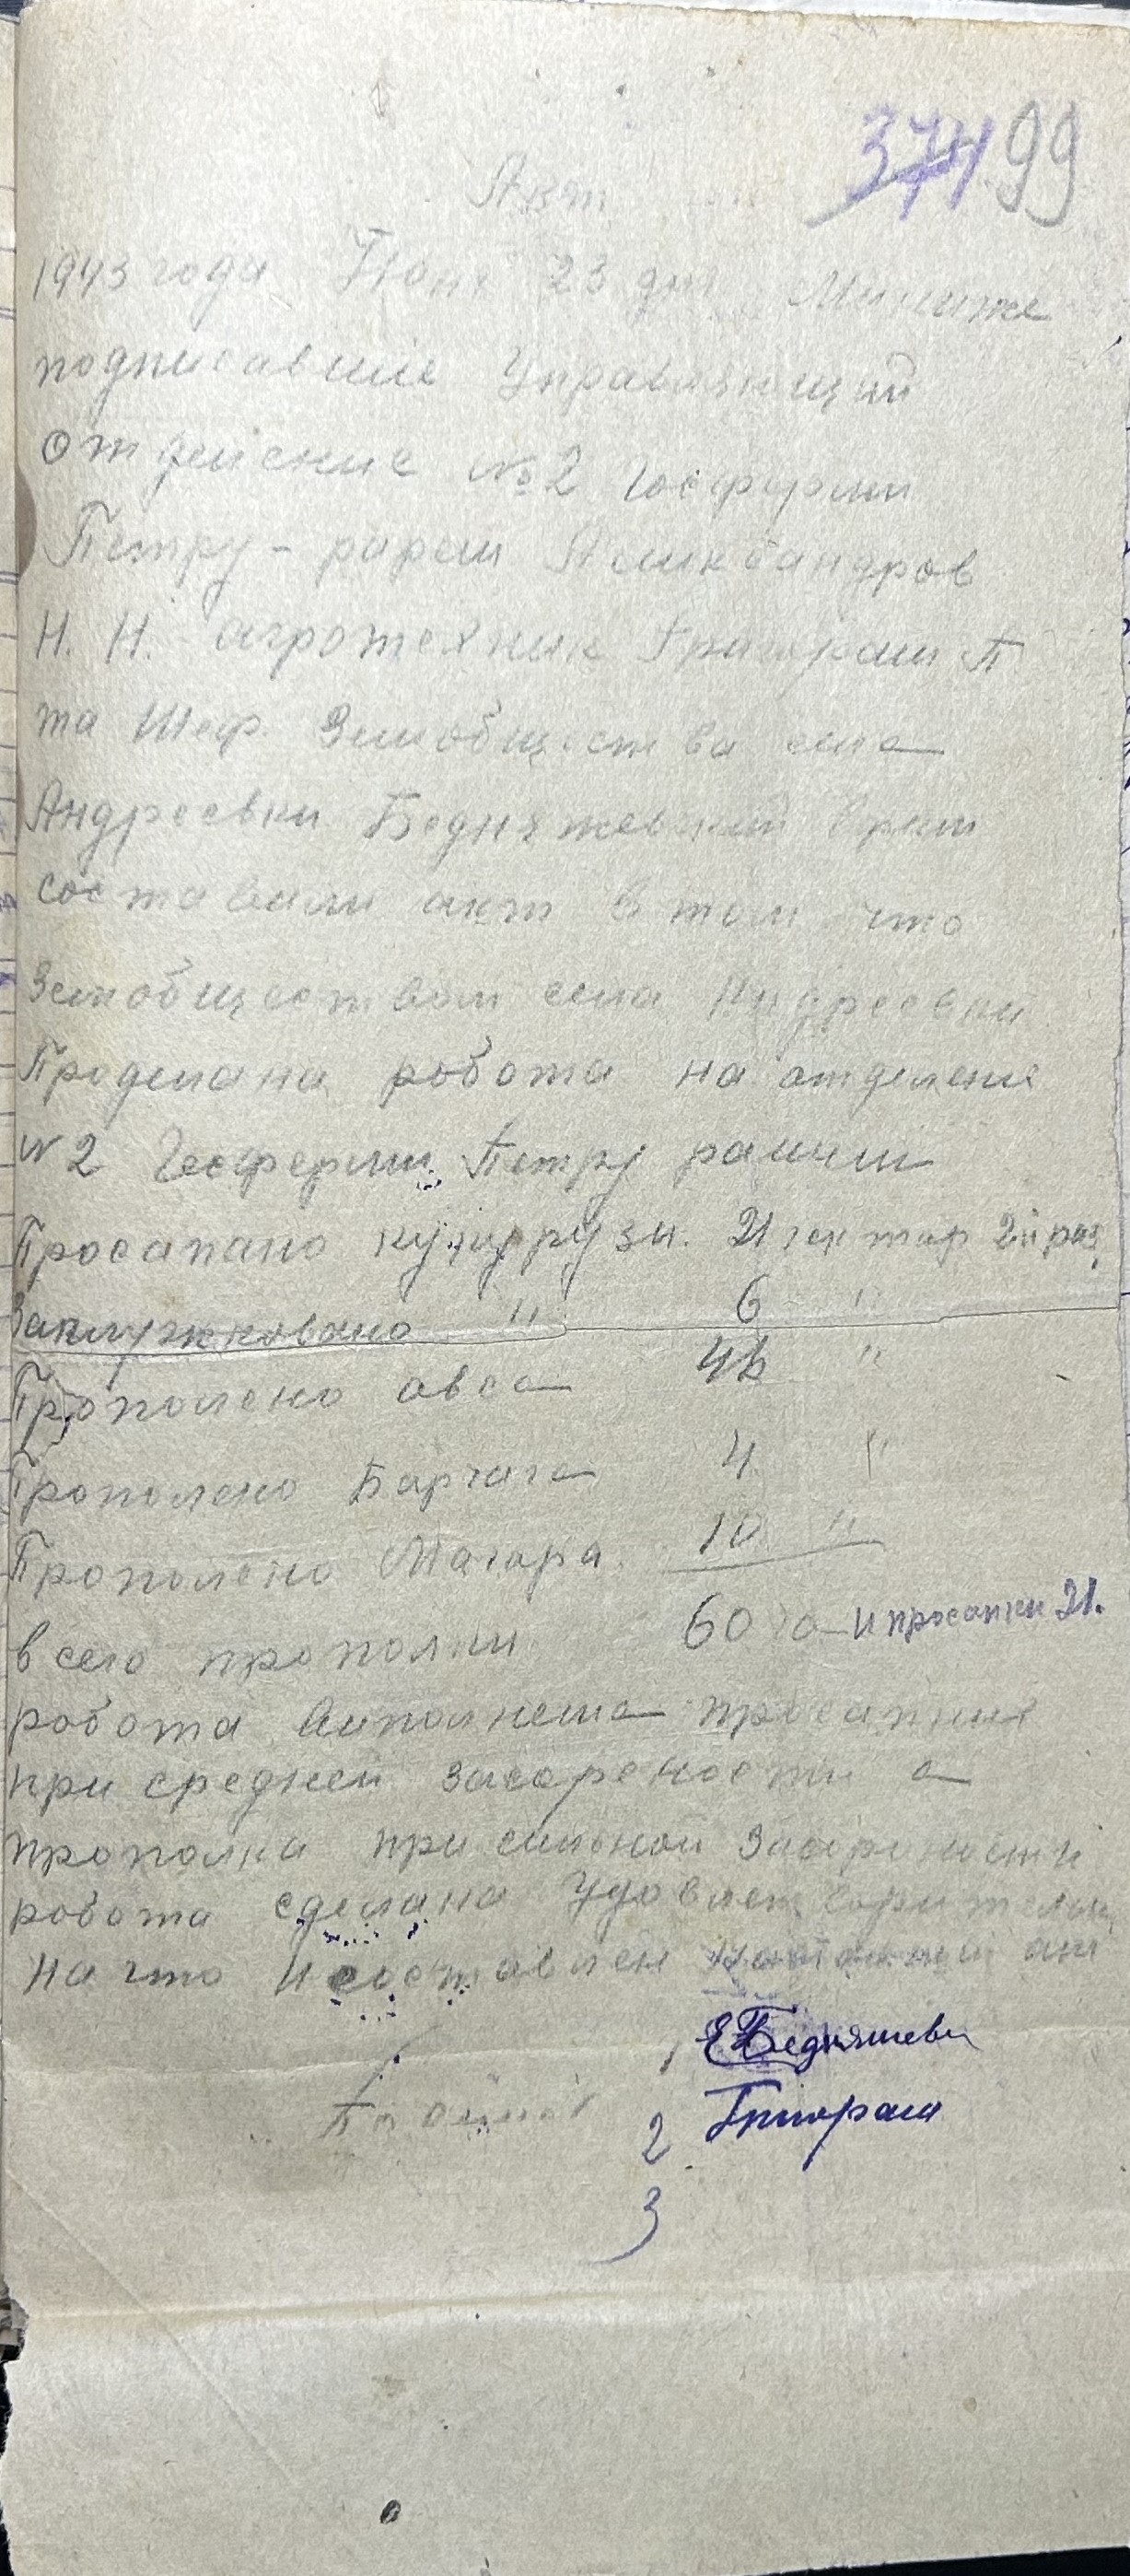 374 99
Акт
1943 года Июня 23 дня Мыниже
подписавшие Управляющий
Отделение №2 Госфермы
Петру-рареш Александров
Н. Н. агротехник Григораш П
та Шеф Земобщества села
Андреевки Бедняжевский
составили акт в том что
Земобществом села Андреевки
Проделана робота на отделения
№2 Госфермы Петру
Просапано кукуррузы. 21 гектар 2й раз
" 6 "
Прополено авса 46 "
Прополено 4 "
Прополено Магара 10 "
всего прополки 60 га и просапки 21.
робота виполнена просапка
при средней засореность а
прополка при сильной засореность
робота сделана Удовлетворительно
на что и составлен настоящий акт
1 ЕБедняшевы
2 Григораш
3